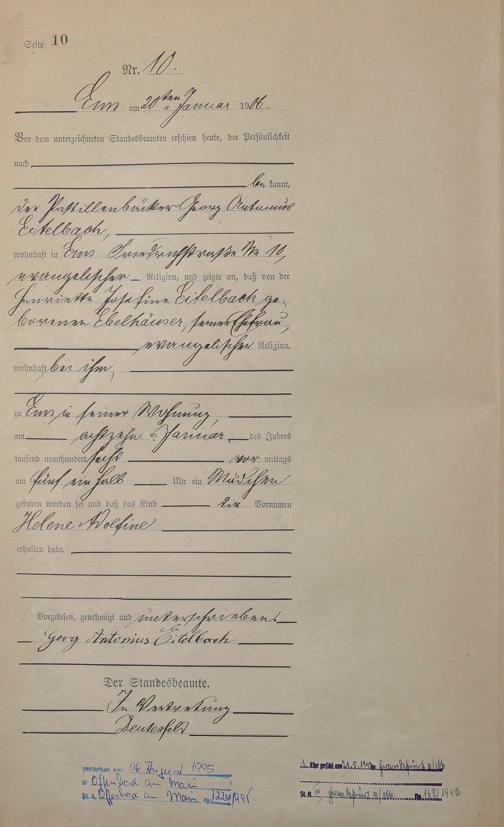 Seite 10
Nr. 10.
Ems am 20ten Januar 1906.
Vor dem unterzeichneten Standesbeamten erschien heute, der Persönlichkeit
nach
be kannt,
der Pastillenbäcker Georg Antonius
Eitelbach,
wohnhaft in Ems Friedrichstraße No 10,
evangelischer Religion, und zeigte an, daß von der
Henriette Josefine Eitelbach ge-
borenen Ebelhäuser, seiner Ehefrau,
evangelischer Religion,
wohnhaft bei ihm,
zu Ems in seiner Wohnung,
am achtzehn ten Januar des Jahres
tausend neunhundert sechs vor mittags
um fünf ein halb Uhr ein Mädchen
geboren worden sei und daß das Kind die Vornamen
Helene Adolfine
erhalten habe.
Vorgelesen, genehmigt und unterschrieben
Georg Antonius Eitelbach
Der Standesbeamte.
In Vertretung
gestorben am 26. August 1995
in Offenbach am Main
St. A. Offenbach am Main Nr.
1. Ehe geschl. am Frankfurt a/M
St. A. Frankfurt a/M Nr.